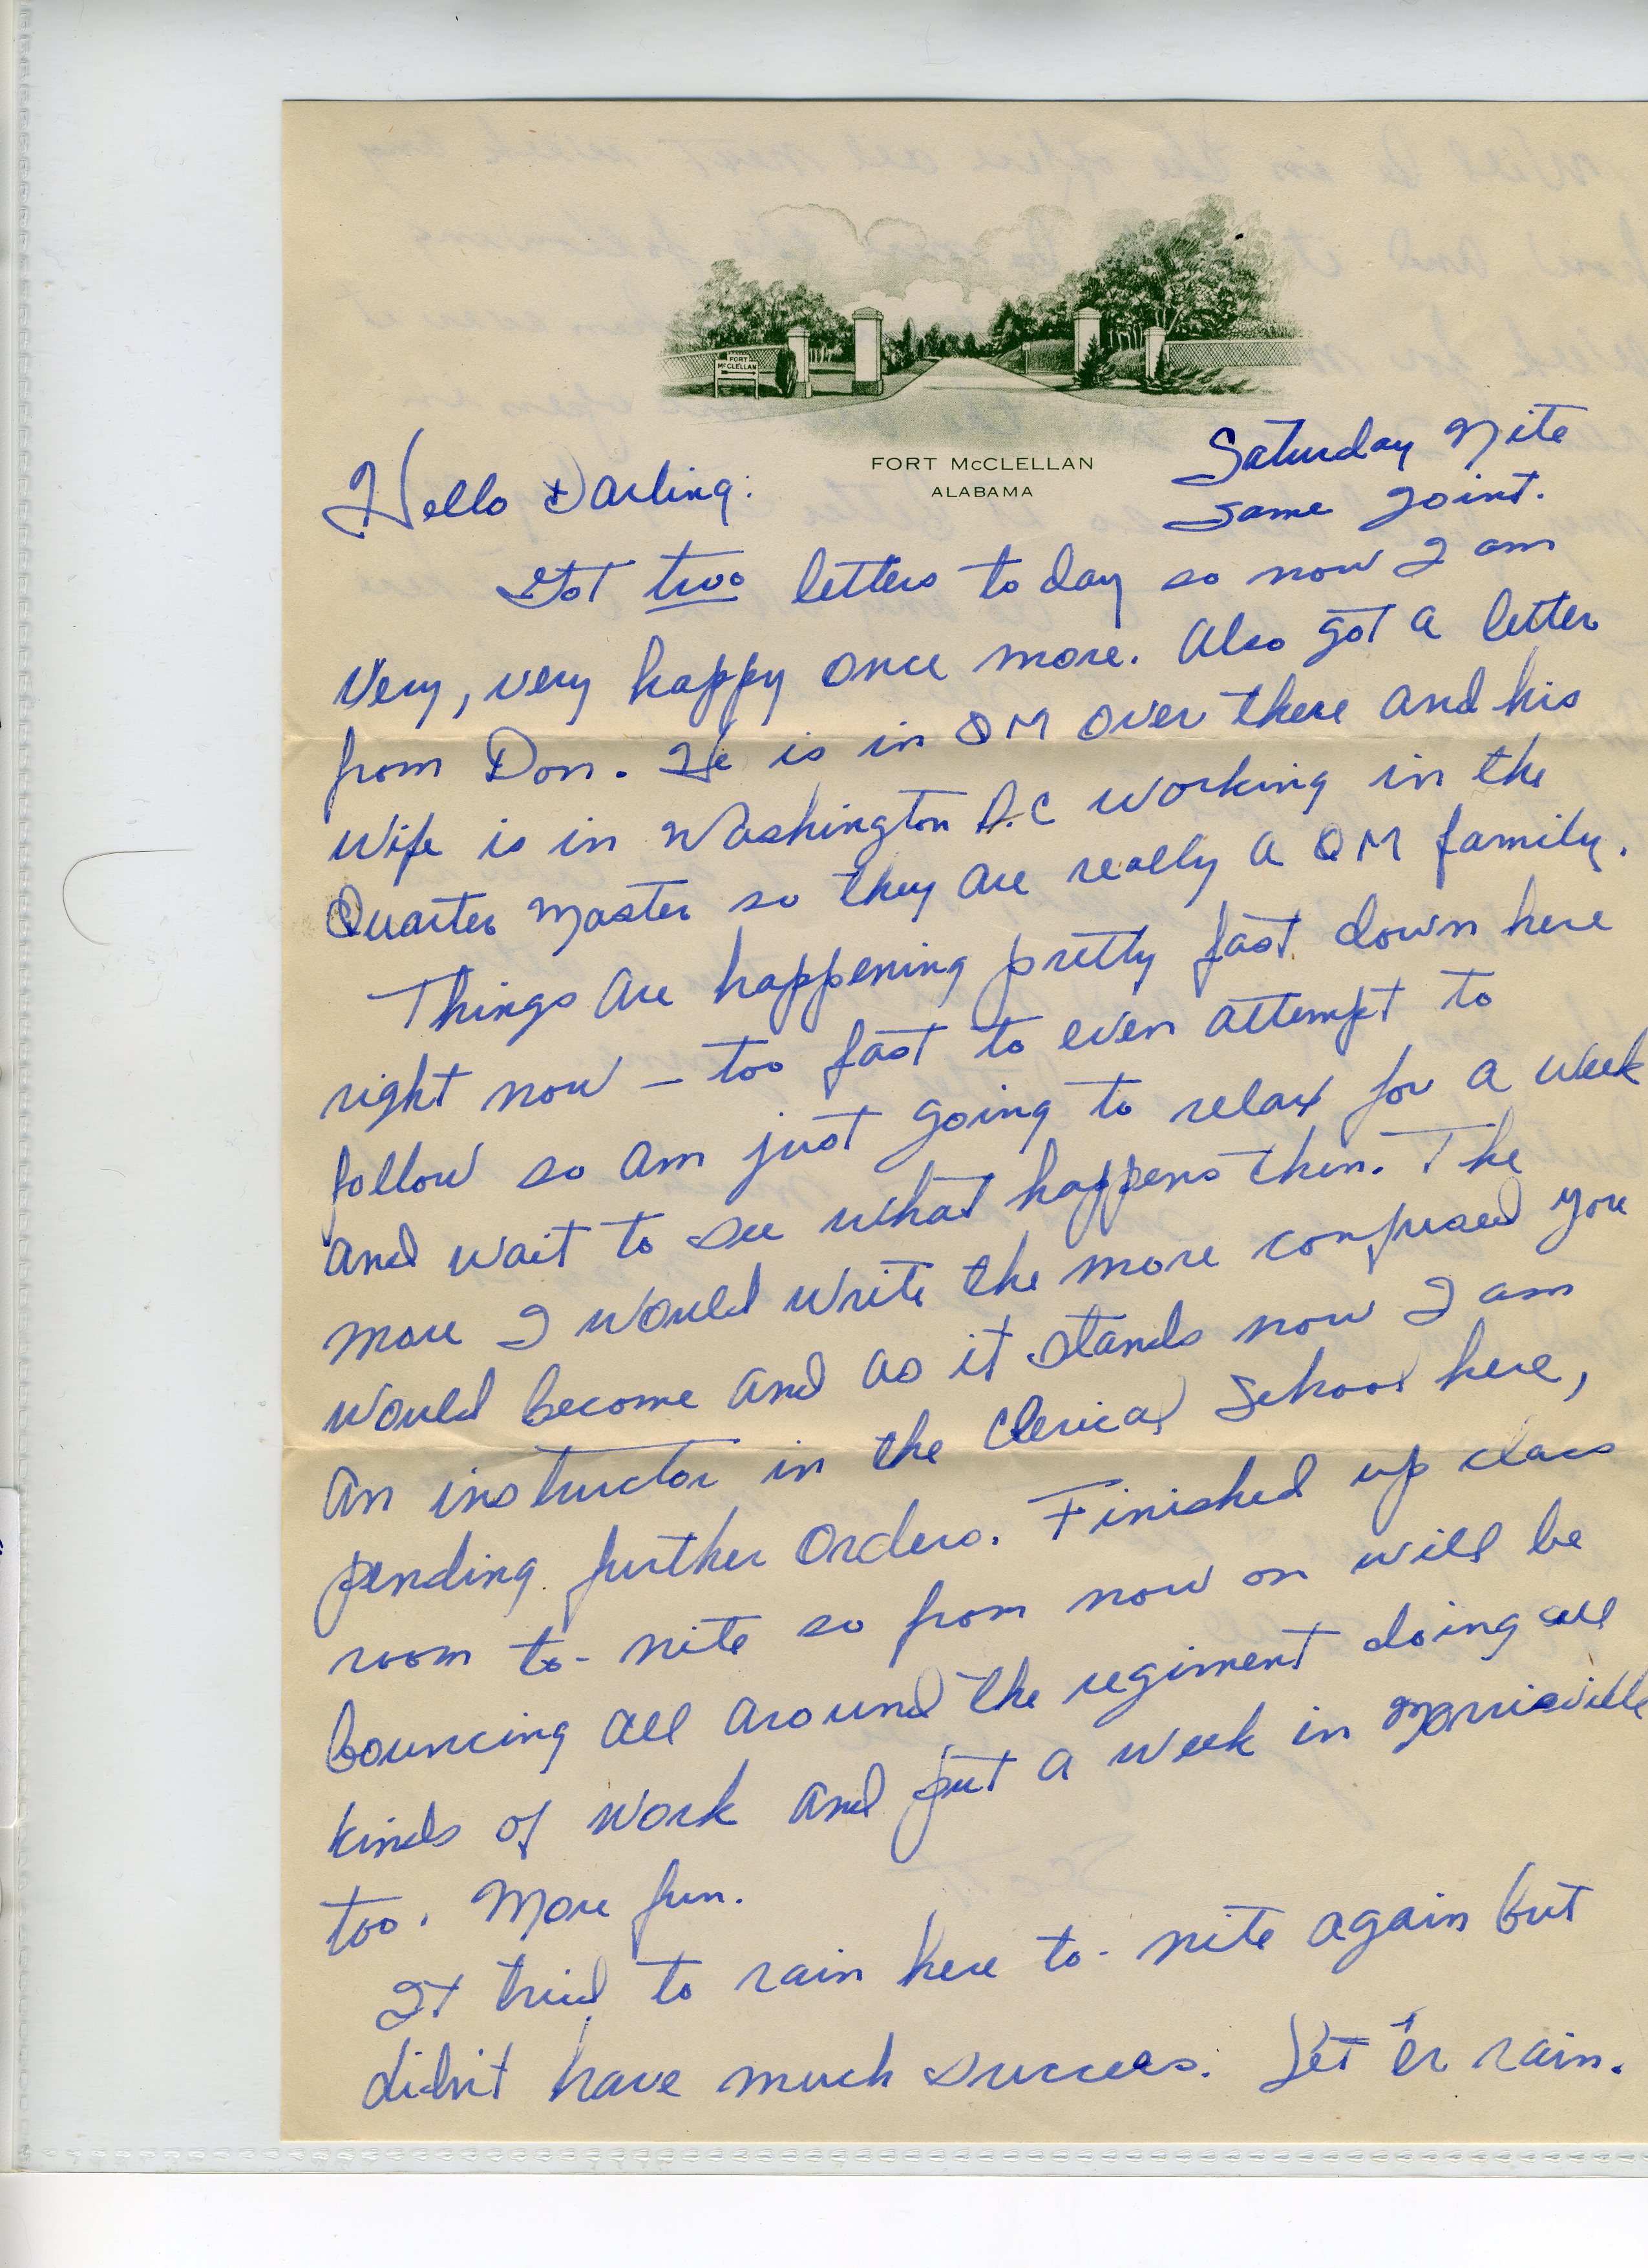 FORT
McCLELLAN
FORT McCLELLAN
ALABAMA
Saturday Nite
Same Joint.
Hello Darling:
Got two letters to day so now I am
very, very happy once more. Also got a letter
from Don. He is in QM over there and his
wife is in Washington D.C working in the
Quarter Master so they are really a QM family.
Things are happening pretty fast down here
right now – too fast to even attempt to
follow so am just going to relax for a week
and wait to see what happens then. The
more I would write the more confused you
would become and as it stands now I am
an instructor in the Clerical School here,
pending further orders. Finished up class
room to-nite so from now on will be
bouncing all around the regiment doing all
kinds of work and put a week in Morrisville
too. More fun.
It tried to rain here to-nite again but
didn't have much success. Let 'er rain.